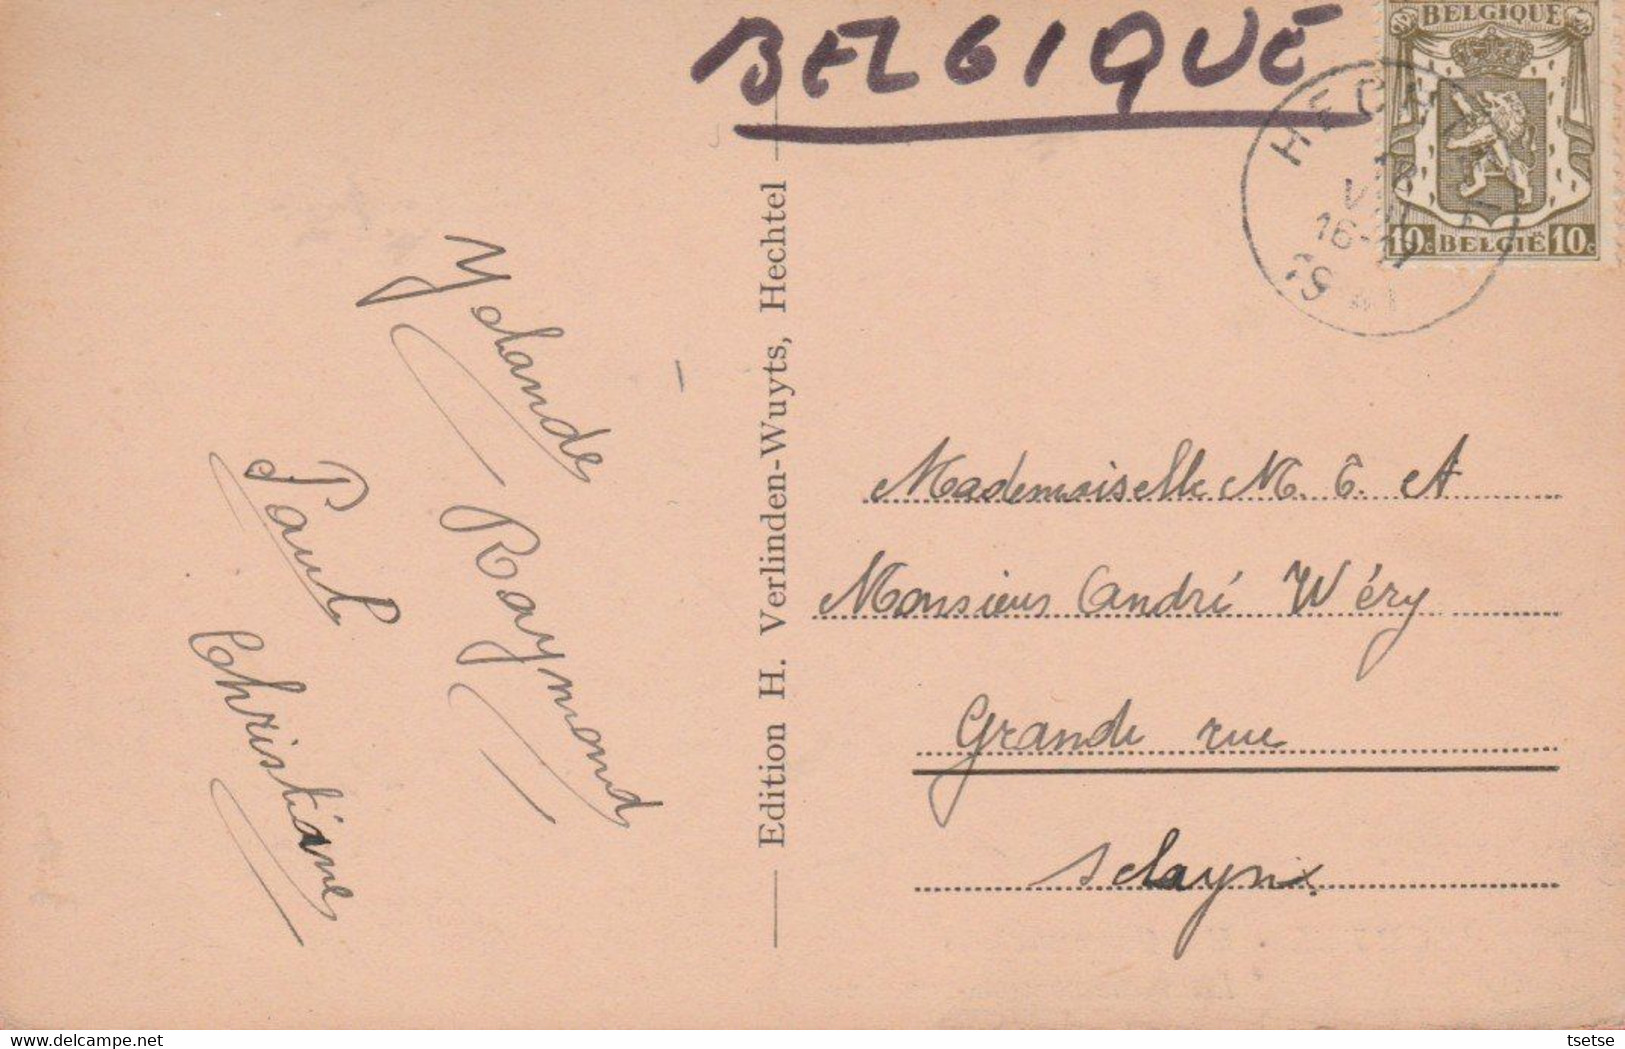 BELGIQUE
BELGIQUE
10c BELGIË 10c
HECHTEL
16-17
Yolande
Raymond
Paul
Christiane
Edition H. Verlinden-Wuyts, Hechtel
Mademoiselle M. T. et
Monsieur André Wéry
Grande rue
Sclayn
tsetse